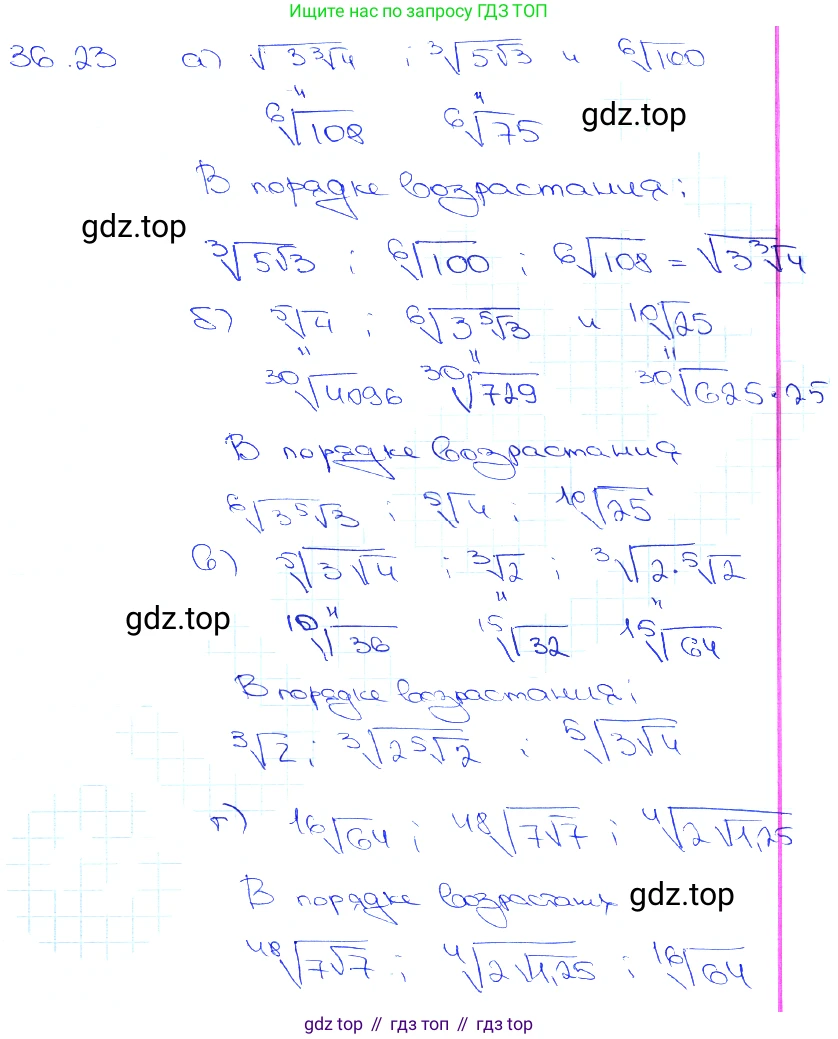 Ищите нас по запросу ГДЗ ТОП
36.23 а) √(3∛4) ; ∛(5√3) и ⁶√100
⁶√108 ⁶√75 gdz.top
В порядке возрастания:
gdz.top
∛(5√3) ; ⁶√100 ; ⁶√108 = √(3∛4)
б) ⁵√4 ; ⁶√(3⁵√3) и ¹⁰√25
³⁰√4096 ³⁰√729 ³⁰√625·25
В порядке возрастания
⁶√(3⁵√3) ; ⁵√4 ; ¹⁰√25
в) ⁵√(3√4) ; ∛2 ; ∛(2·⁵√2)
gdz.top
¹⁰√36 ¹⁵√32 ¹⁵√64
В порядке возрастания;
∛2 ; ∛(2⁵√2) ; ⁵√(3√4)
г) ¹⁶√64 ; ⁴⁸√(7√7) ; ⁴√(2√1,25)
В порядке gdz.top
⁴⁸√(7√7) ; ⁴√(2√1,25) ; ¹⁶√64
gdz top // гдз топ // gdz top